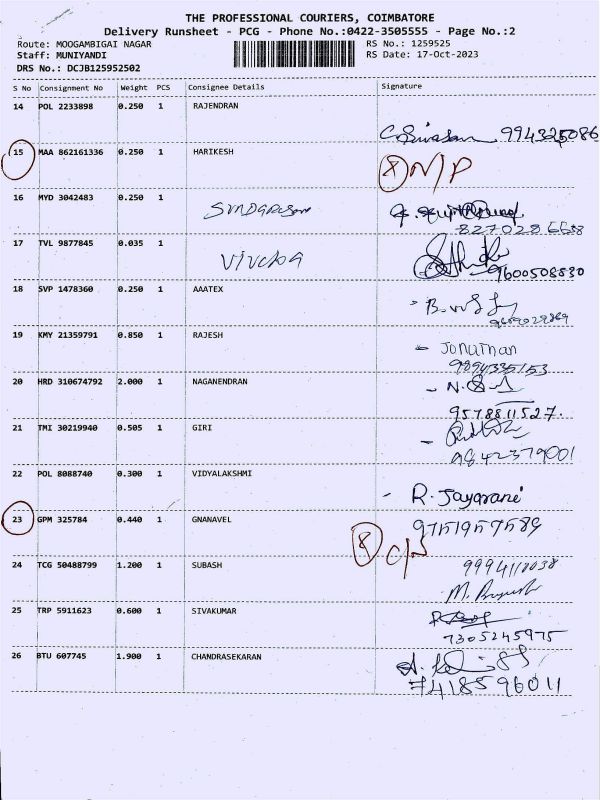 THE PROFESSIONAL COURIERS, COIMBATORE
Delivery Runsheet - PCG - Phone No.:0422-3505555 - Page No.:2
Route: MOOGAMBIGAI NAGAR RS No.: 1259525
Staff: MUNIYANDI RS Date: 17-Oct-2023
DRS No.: DCJB125952502
S No Consignment No Weight PCS Consignee Details Signature
14 POL 2233898 0.250 1 RAJENDRAN
994325086
15 MAA 862161336 0.250 1 HARIKESH
N/P
16 MYD 3042483 0.250 1
8270286668
17 TVL 9877845 0.035 1
9600508830
18 SVP 1478360 0.250 1 AAATEX
19 KMY 21359791 0.850 1 RAJESH
- Jonathan
9894335153
20 HRD 310674792 2.000 1 NAGANENDRAN
9578811527.
21 TMI 30219940 0.505 1 GIRI
9842379001
22 POL 8088740 0.300 1 VIDYALAKSHMI
- R. Jayarani
23 GPM 325784 0.440 1 GNANAVEL
9751957589
24 TCG 50488799 1.200 1 SUBASH
9994110038
25 TRP 5911623 0.600 1 SIVAKUMAR
7305245975
26 BTU 607745 1.900 1 CHANDRASEKARAN
7418596011